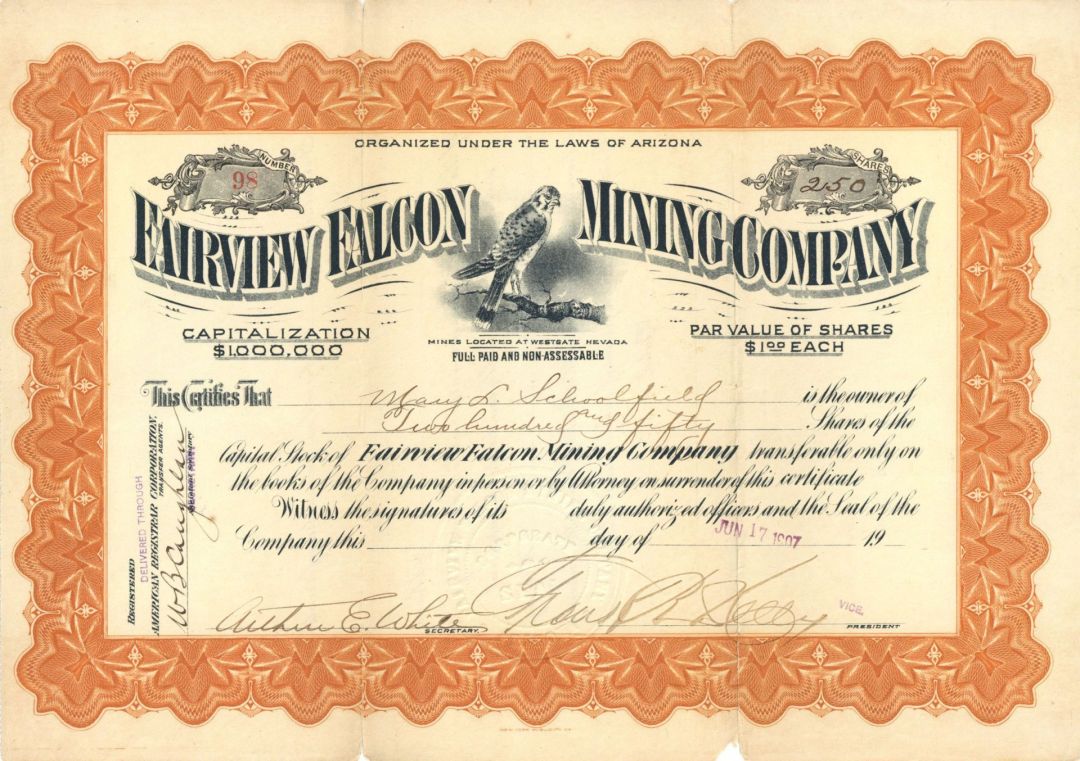 ORGANIZED UNDER THE LAWS OF ARIZONA
NUMBER
98
SHARES
250
FAIRVIEW FALCON MINING COMPANY
CAPITALIZATION
$1,000,000
MINES LOCATED AT WESTGATE NEVADA
FULL PAID AND NON-ASSESSABLE
PAR VALUE OF SHARES
$1.00 EACH
This Certifies That Mary L. Schoolfield is the owner of
Two hundred and fifty Shares of the
Capital Stock of Fairview Falcon Mining Company transferable only on
the books of the Company in person or by Attorney on surrender of this certificate
Witness the signatures of its duly authorized officers and the Seal of the
Company this day of JUN 17 1907 19
Arthur E. White
SECRETARY.
VICE.
PRESIDENT
REGISTERED
DELIVERED THROUGH
AMERICAN REGISTRAR CORPORATION,
TRANSFER AGENTS.